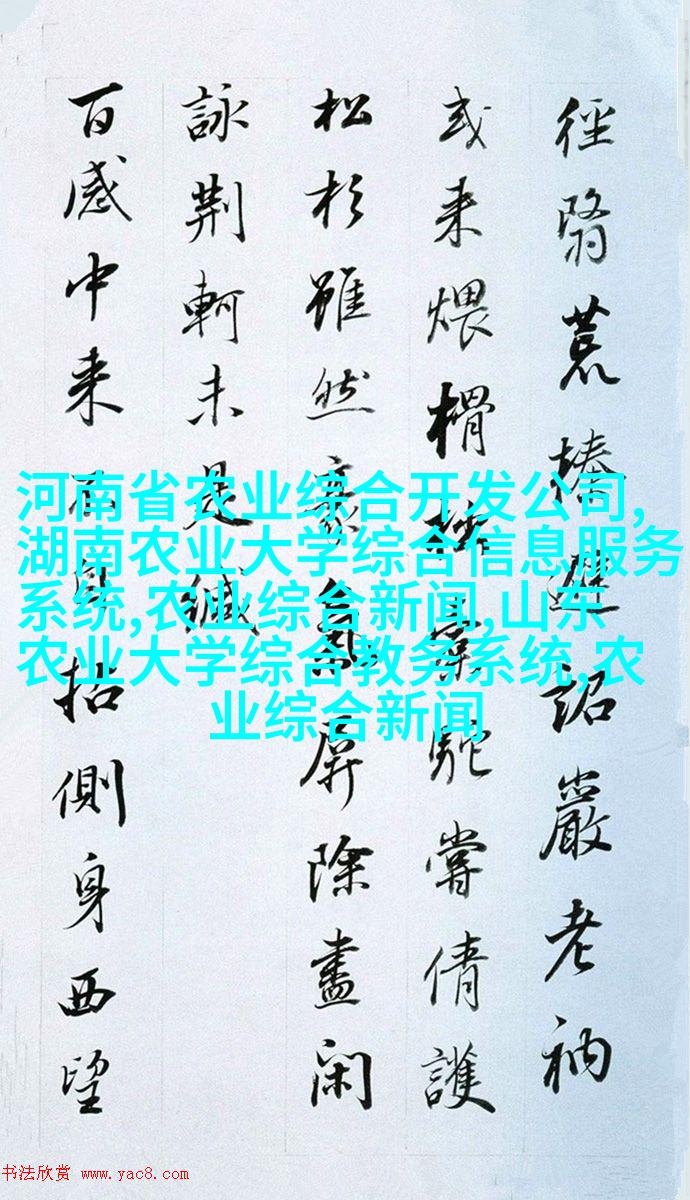 徑翳荒榛避詔嚴老衲
或来煨榾柮橐駝嘗倩護
松杉雖然豪氣屏除盡閑
詠荆軻未是緘
百感中来不自拈側身西望
河南省农业综合开发公司,
湖南农业大学综合信息服务
系统,农业综合新闻,山东
农业大学综合教务系统,农
业综合新闻
书法欣赏 www.yac8.com